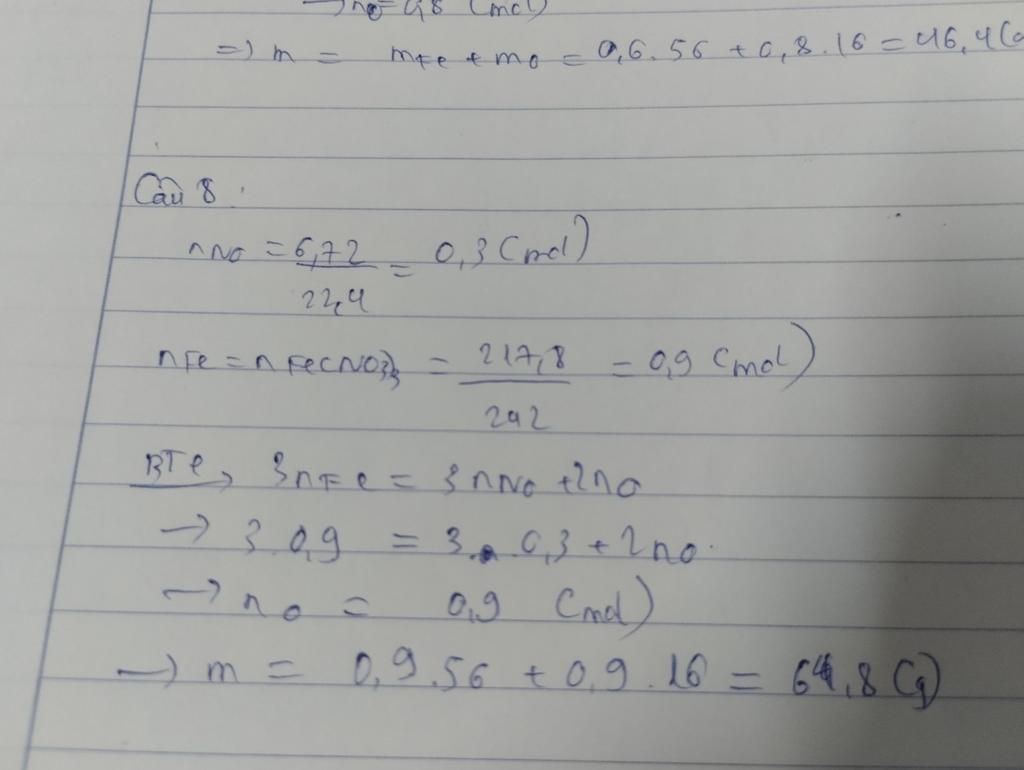 → no = 0,8 (mol)
=> m = mFe + mo = 0,6.56 + 0,8.16 = 46,4 (
Câu 8:
nNO = 6,72 / 22,4 = 0,3 (mol)
nFe = nFe(NO3)3 = 217,8 / 242 = 0,9 (mol)
BTe → 3nFe = 3nNO + 2nO
→ 3.0,9 = 3.0,3 + 2nO
→ nO = 0,9 (mol)
→ m = 0,9.56 + 0,9.16 = 64,8 (g)